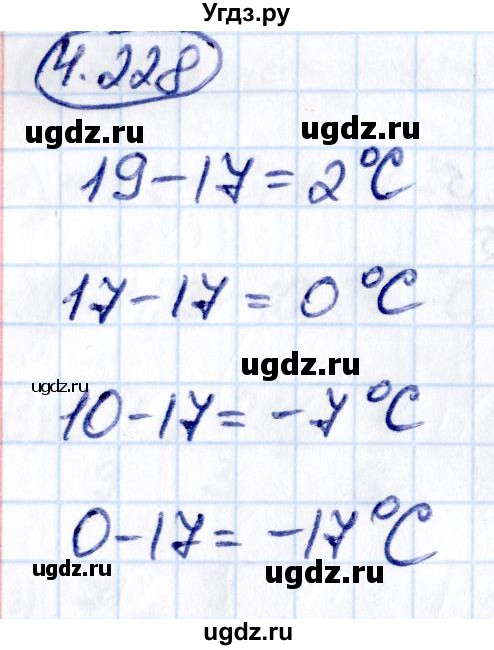 Угдз.ру
4.228
ugdz.ru ugdz.ru
19-17=2°C
17-17=0°C
ugdz.ru
ugdz.ru
10-17=-7°C
0-17=-17°C
ugdz.ru ugdz.ru
ugdz.ru